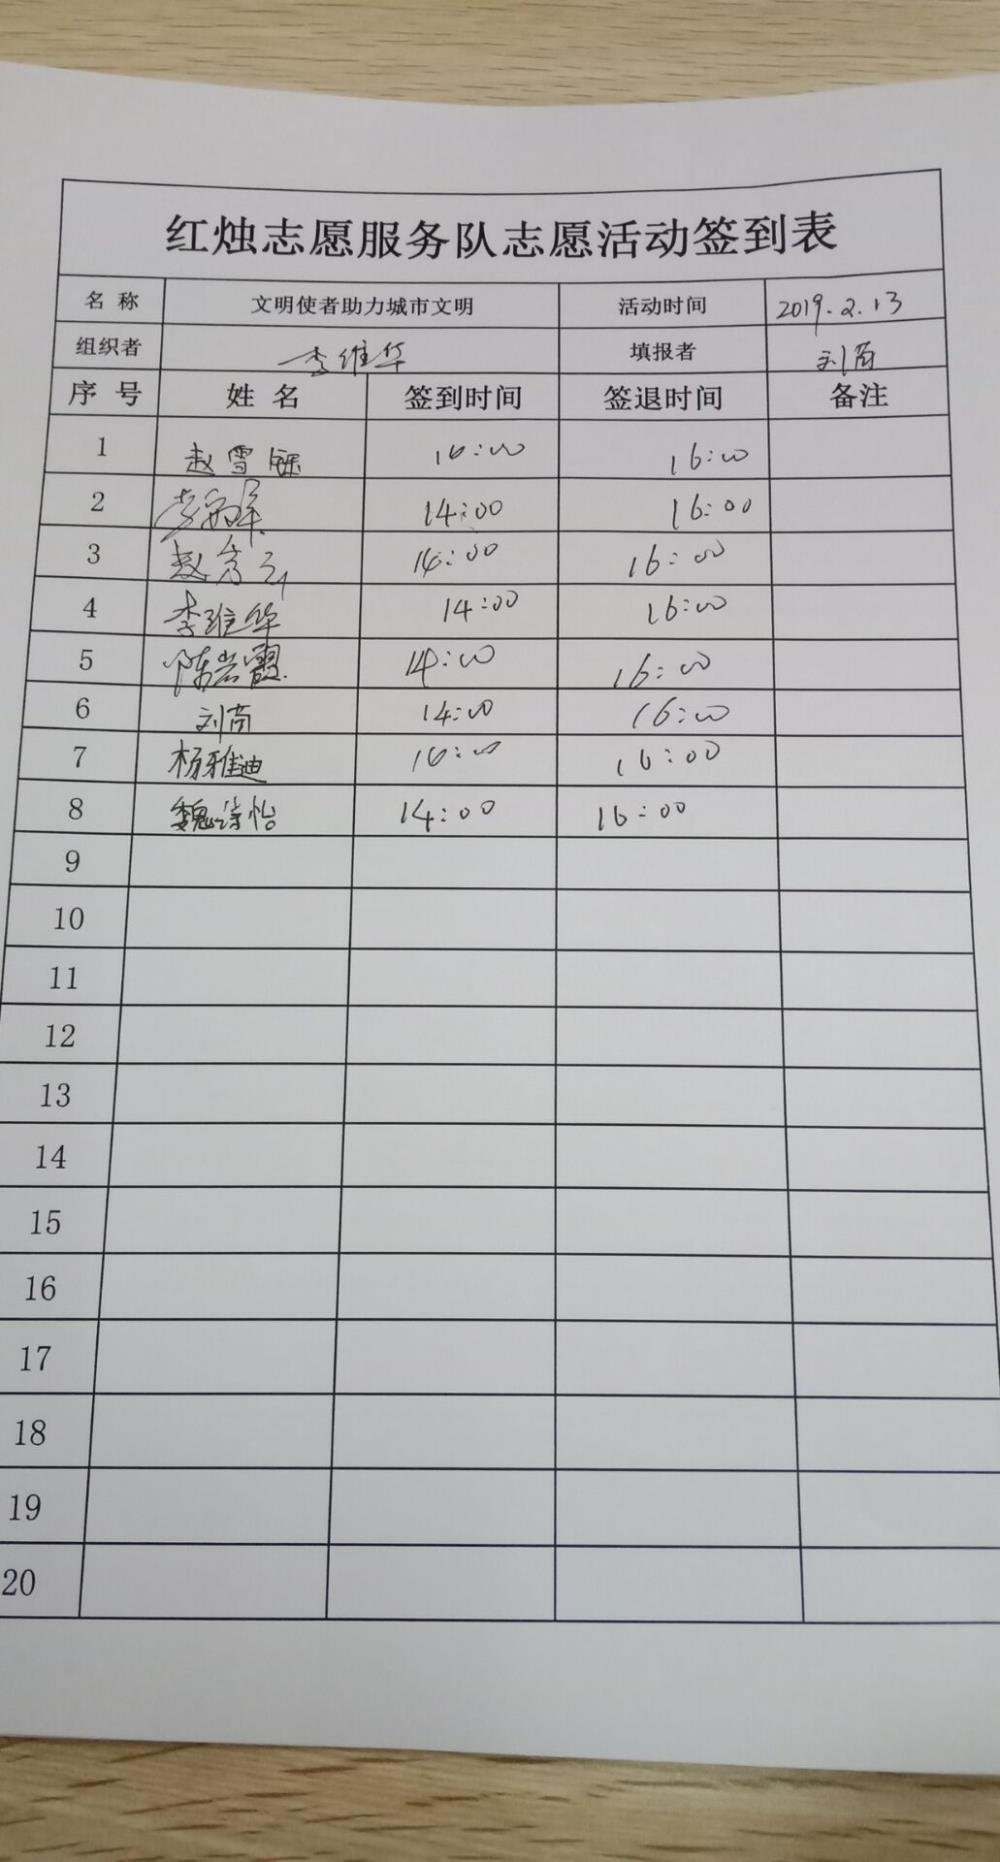 红烛志愿服务队志愿活动签到表
名称 文明使者助力城市文明 活动时间 2019.2.13
组织者 李维华 填报者 刘芮
序号 姓名 签到时间 签退时间 备注
1 赵雪 16:00
2 李 14:00 16:00
3 赵秀云 14:00 16:00
4 李维华 14:00 16:00
5 陈岩霞 14:00 16:00
6 刘芮 14:00 16:00
7 杨雅迪 16:00
8 魏诗怡 14:00 16:00
9
10
11
12
13
14
15
16
17
18
19
20